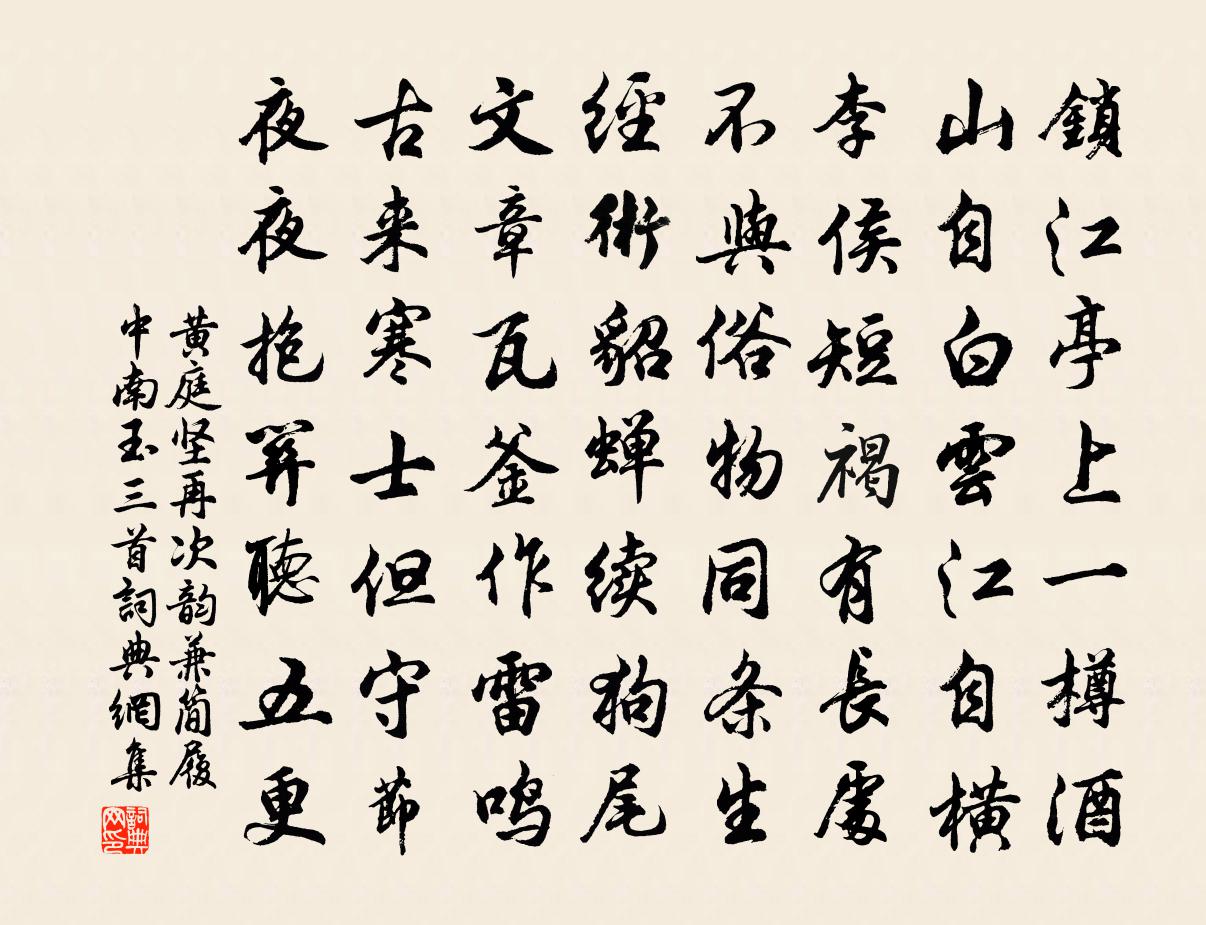 鎖江亭上一樽酒
山自白雲江自橫
李侯短褐有長處
不與俗物同条生
經術貂蝉续狗尾
文章瓦釜作雷鸣
古来寒士但守節
夜夜抱關聽五更
黄庭坚再次韵兼简履
中南玉三首詞典網集
詞典网印